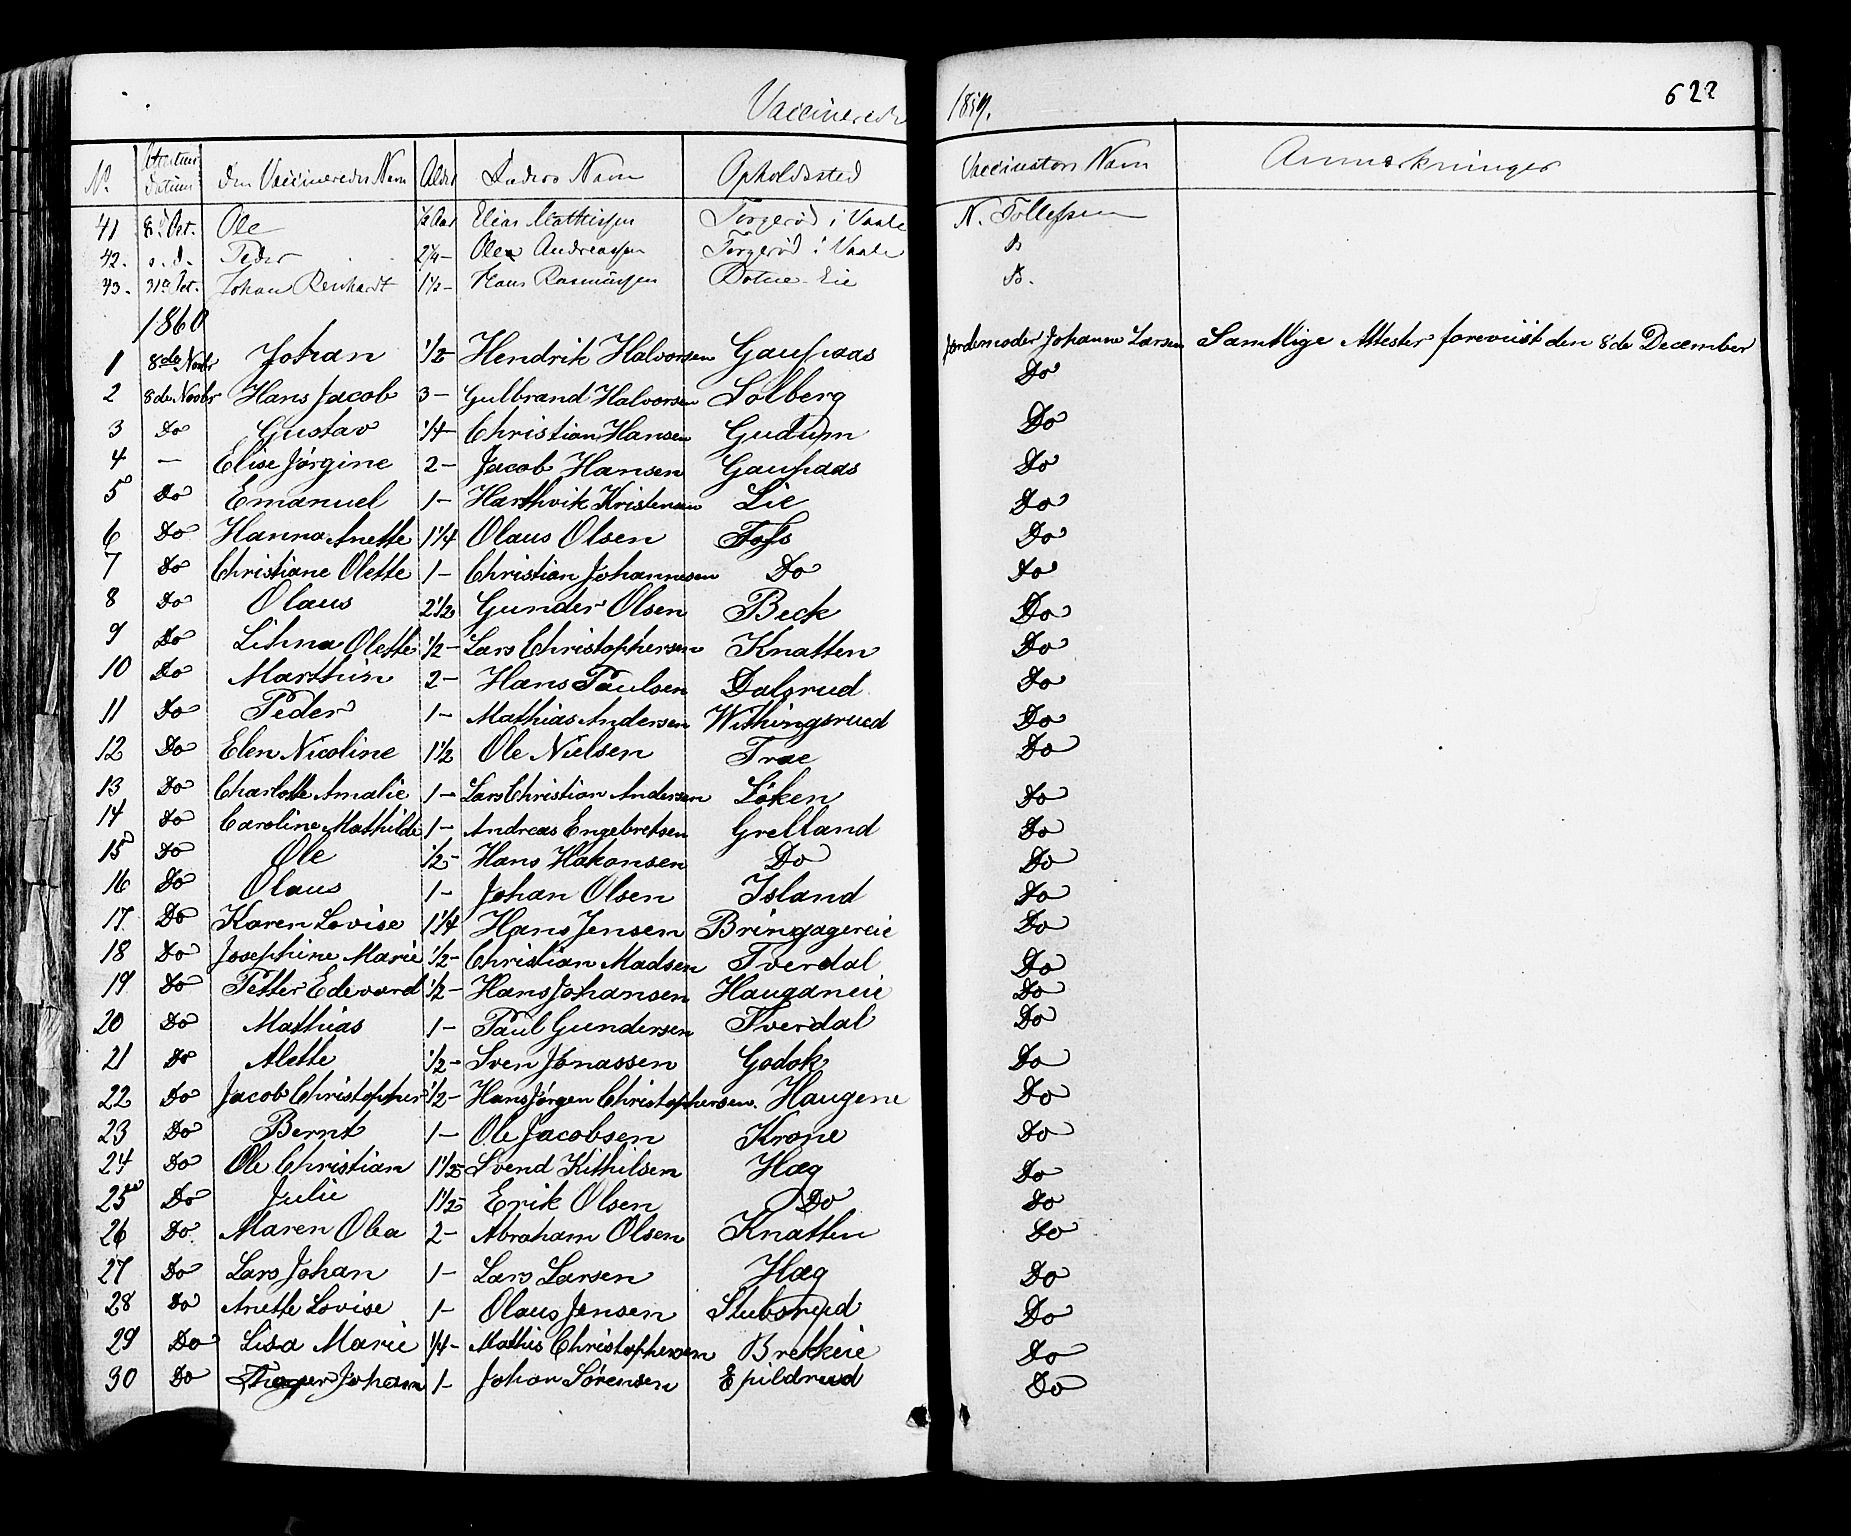 Vaccinerede 1859. 622
No Attestens Datum Den Vaccineredes Navn Alder Faders Navn Opholdssted Vaccinators Navn Anmærkninger
41 8de Oct. Ole 1/2 Aar Elias Mathissen Torgerød i Vaale N. Tollefsen
42. s. d. Peder 2 1/4 - Ole Andreassen Torgerød i Vaale
43. 31te Oct. Johan Reinhardt 1 1/2 - Hans Rasmussen Botne Eie
1860
1 8de Novbr Johan 1/2 - Hendrik Halvorsen Gaupaas Jordemoder Johanne Larsen Samtlige Attester foreviist den 8de December
2 8de Novbr Hans Jacob 3 - Gulbrand Halvorsen Solberg Do
3 Do Gustav 1/4 - Christian Hansen Gudum Do
4 — Elise Jørgine 2 - Jacob Hansen Gaupaas Do
5 Do Emanuel 1 - Harthvik Kristensen Lie Do
6 Do Hanna Anette 1 1/4 Olaus Olsen Fofs Do
7 Do Christiane Olette 1 - Christian Johannesen Do Do
8 Do Olaus 2 1/2 Gunder Olsen Beck Do
9 Do Olette 1/2 - Lars Christophersen Knatten Do
10 Do Marthin 2 - Hans Paulsen Dalsrud Do
11 Do Peder 1 - Mathias Andersen Withingsrud Do
12 Do Elen Nicoline 1 1/2 Ole Nielsen Trae Do
13 Do Charlotte Amalie 1 - Lars Christian Andersen Løken Do
14 Do Caroline Mathilde 1 - Andreas Engebretsen Grelland Do
15 Do Ole 1/2 - Hans Hakansen Do Do
16 Do Olaus 1 - Johan Olsen Island Do
17 Do Karen Lovise 1 1/4 Hans Jensen Bringagereie Do
18 Do Josephine Marie 1/2 - Christian Madsen Tverdal Do
19 Do Petter Edevard 1/2 - Hans Johansen Hauganeie Do
20 Do Mathias 1 - Paul Gundersen Tverdal Do
21 Do Alette 1/2 - Sven Jonassen Godok Do
22 Do Jacob Christopher 1/2 - Hans Jørgen Christophersen. Haugene Do
23 Do Bernt 1 - Ole Jacobsen Krone Do
24 Do Ole Christian 1 1/2 Svend Kithilsen Hæg Do
25 Do Julie 1 1/2 Erik Olsen Do Do
26 Do Maren Olea 2 - Abraham Olsen Knatten Do
27 Do Lars Johan 1 - Lars Larsen Hæg Do
28 Do Anette Lovise 1 - Olaus Jensen Stubsrud Do
29 Do Lisa Marie 1/4 - Mathis Christophersen Brekkeie Do
30 Do Johan 1 - Johan Sørensen Epildrud Do